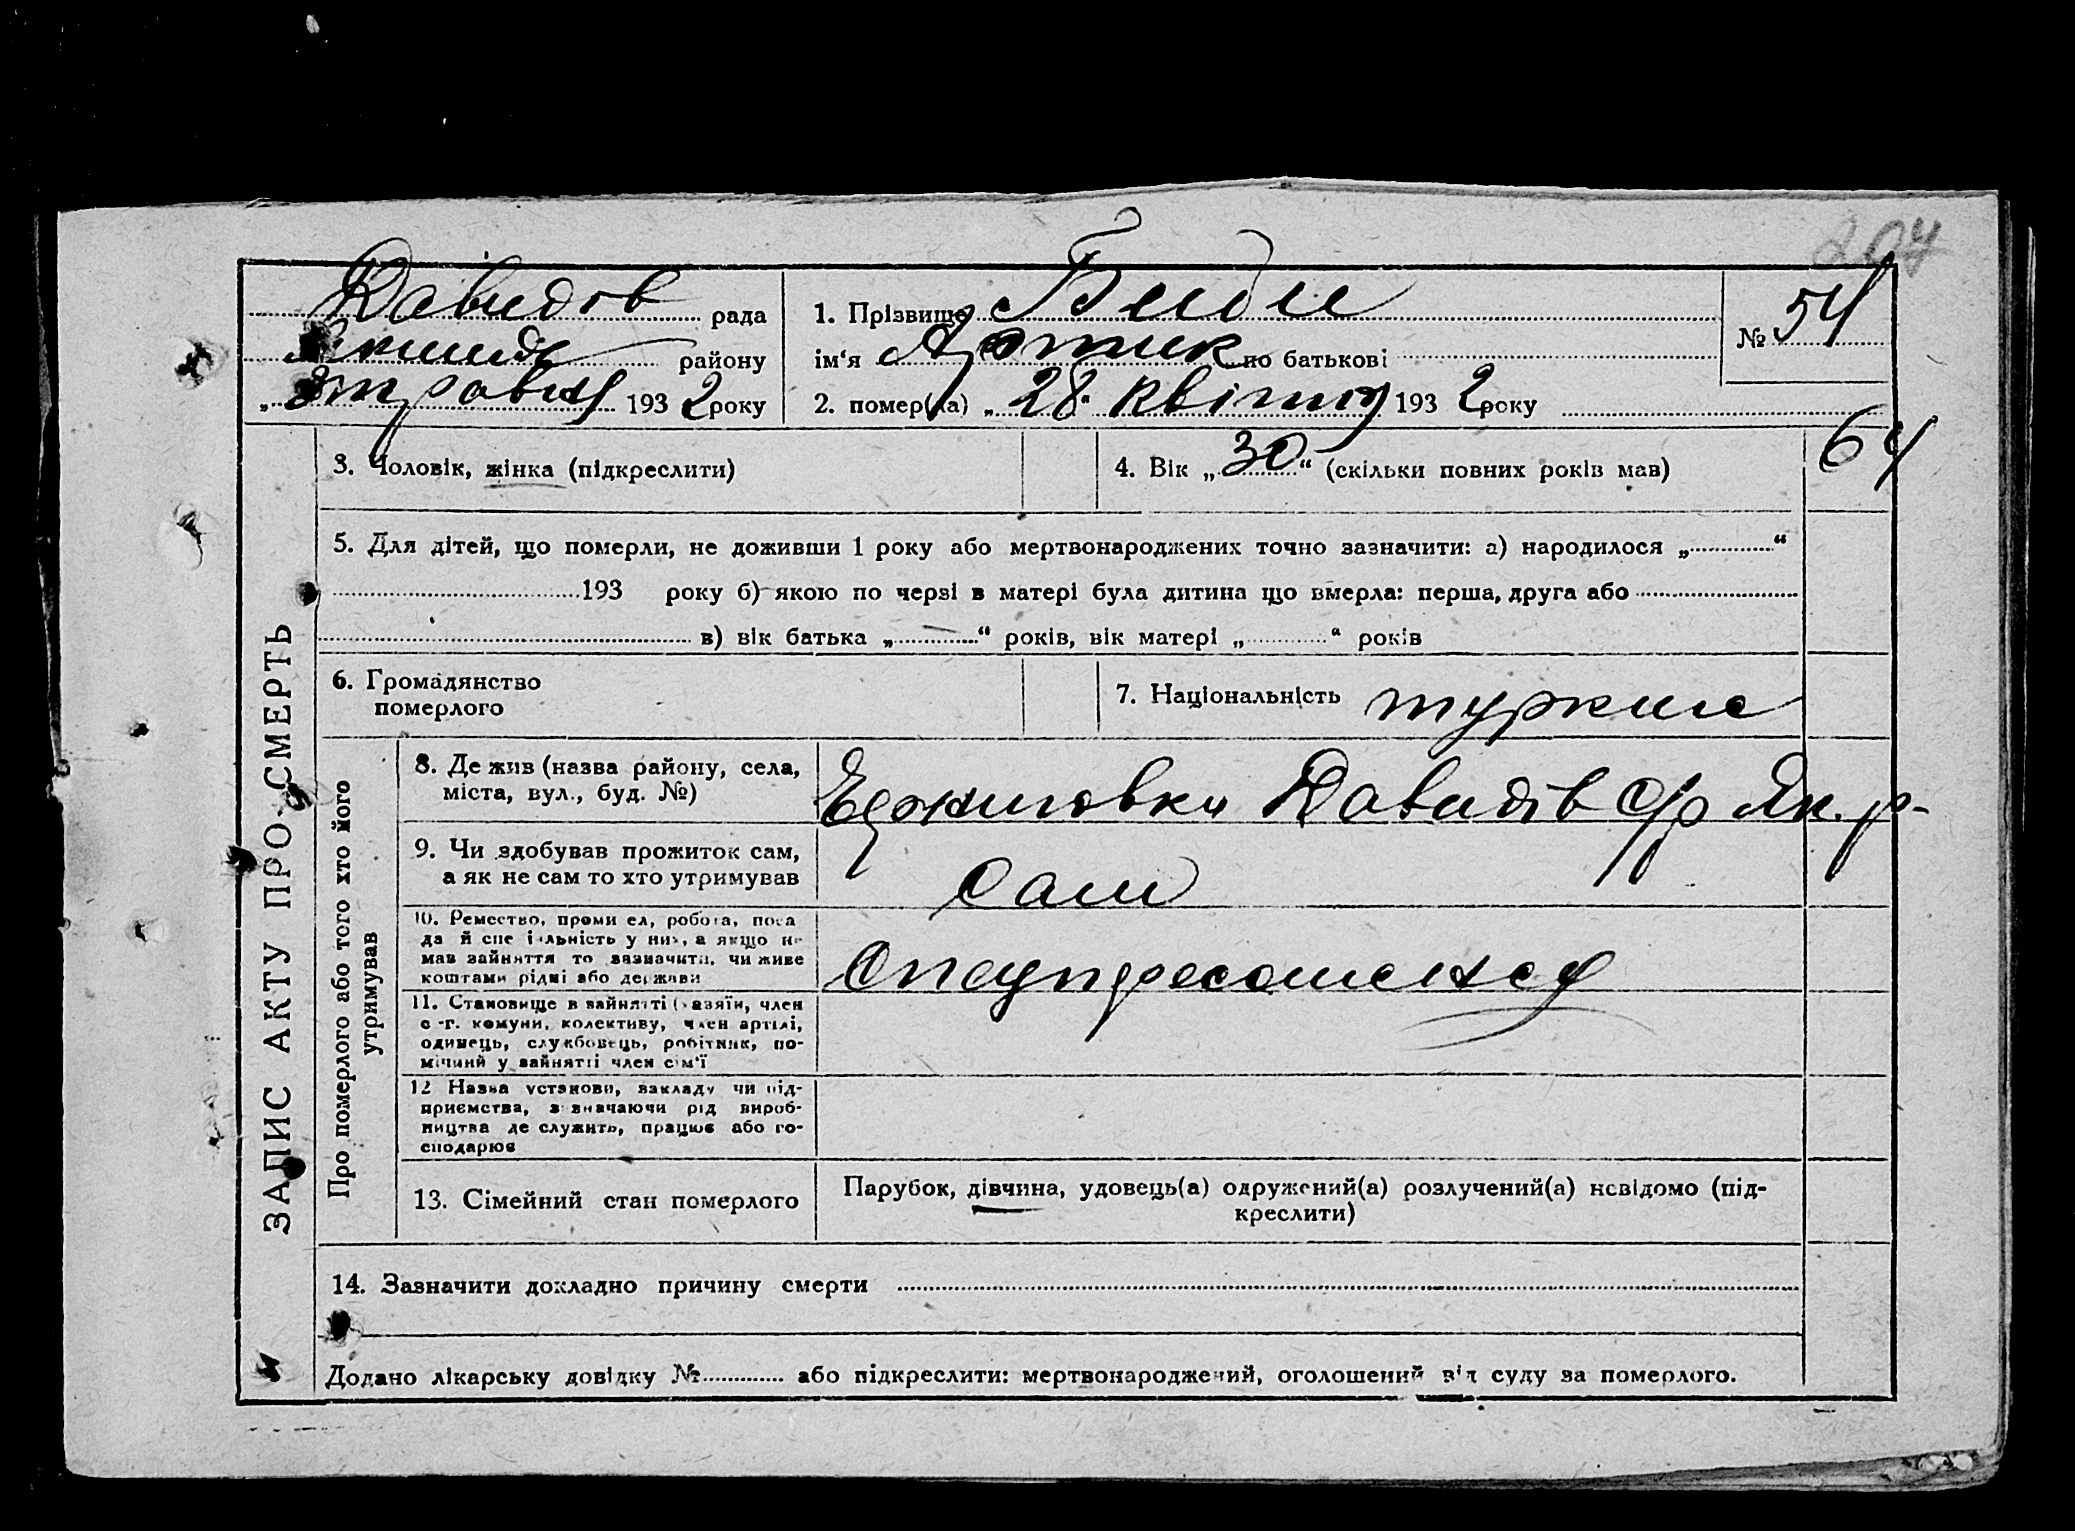 204
Давидов рада
району
„ 3 травня 1932 року
1. Прізвище Биби
ім‘я по батькові
2. помер(ла) „ 28 “ квітня 1932 року
№ 54
64
3. Чоловік, жінка (підкреслити)
4. Вік „ 30 “ (скільки повних років мав)
5. Для дітей, що померли, не доживши 1 року або мертвонароджених точно зазначити: а) народилося „ “
193 року б) якою по черзі в матері була дитина що вмерла: перша, друга або
в) вік батька „ “ років, вік матері „ “ років
6. Громадянство
померлого
7. Національність туркин
ЗАПИС АКТУ ПРО СМЕРТЬ
Про померлого або того хто його
утримував
8. Де жив (назва району, села,
міста, вул., буд. №)
Давидів с/р Як. р-
9. Чи здобував прожиток сам,
а як не сам то хто утримував
Сам
10. Ремество, проми ел, робота, поса
да й спе і льність у них, а якщо не
мав зайняття то зазначити, чи живе
коштами рідні або держави
11. Становище в зайнятті (хазяїн, член
с-г. комуни, колективу, член артілі,
одинець, службовець, робітник, по-
мічний у зайнятті член сім‘ї
12 Назва установи, закладу чи під-
приємства, зазначаючи рід вироб-
ництва де служить, працює або го-
сподарює
13. Сімейний стан померлого
Парубок, дівчина, удовець(а) одружений(а) розлучений(а) невідомо (під-
креслити)
14. Зазначити докладно причину смерти
Додано лікарську довідку № або підкреслити: мертвонароджений, оголошений від суду за померлого.